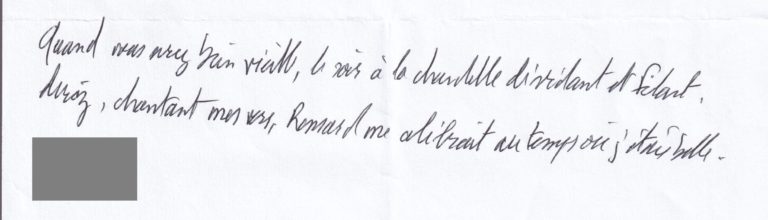 Quand vous serez bien vieille, le soir à la chandelle dévidant et filant.
direz, chantant mes vers, Ronsard me célébrait au temps où j'étais belle.